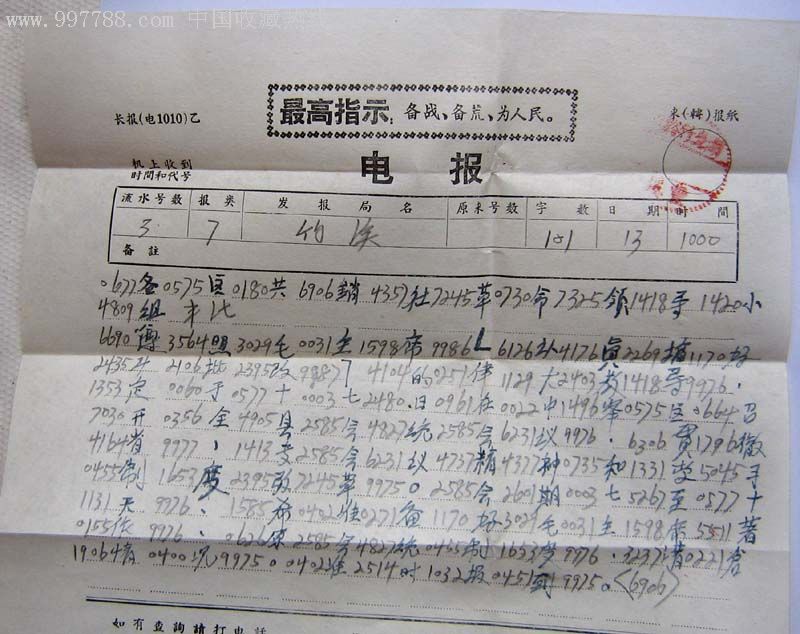 www.997788.com 中国收藏热线
最高指示：备战、备荒、为人民。
长报(电1010)乙
来(转)报纸
机上收到
时间和代号
电报
流水号数 报类 发报局名 原来号数 字数 日期 时间
3 7 竹溪 101 13 1000
备註
0677各0575区0180共6906銷4357社7245革0730命7325领1418导1420小
4809组
6690 3564照3029毛0031主1598席9986 6126 4176真2269 1170好
2435 2106批2395改9987 4104的0251伟1129大2403教1418导9976，
1353定0060于0577十0003七2480日0961在0022中1496 0575区0664召
7030开0356全4905县2585会4827统2585会6231议9976，6306贯1796徹
4164 9977、1413 2585会6231议4737精4377神0735和1331 5045
0455制1653度2395改7245革9975。2585会2601期0003七5267至0577十
1131天9976，1585希0402准0271备1170好3029毛0031主1598席5511著
0155 9976、0626 2585会4827统0455制1653度9976、3237 0221仓
1906 0400况9975。0402准2514时1032报0451到9975。(6906)
如有查询请打电话